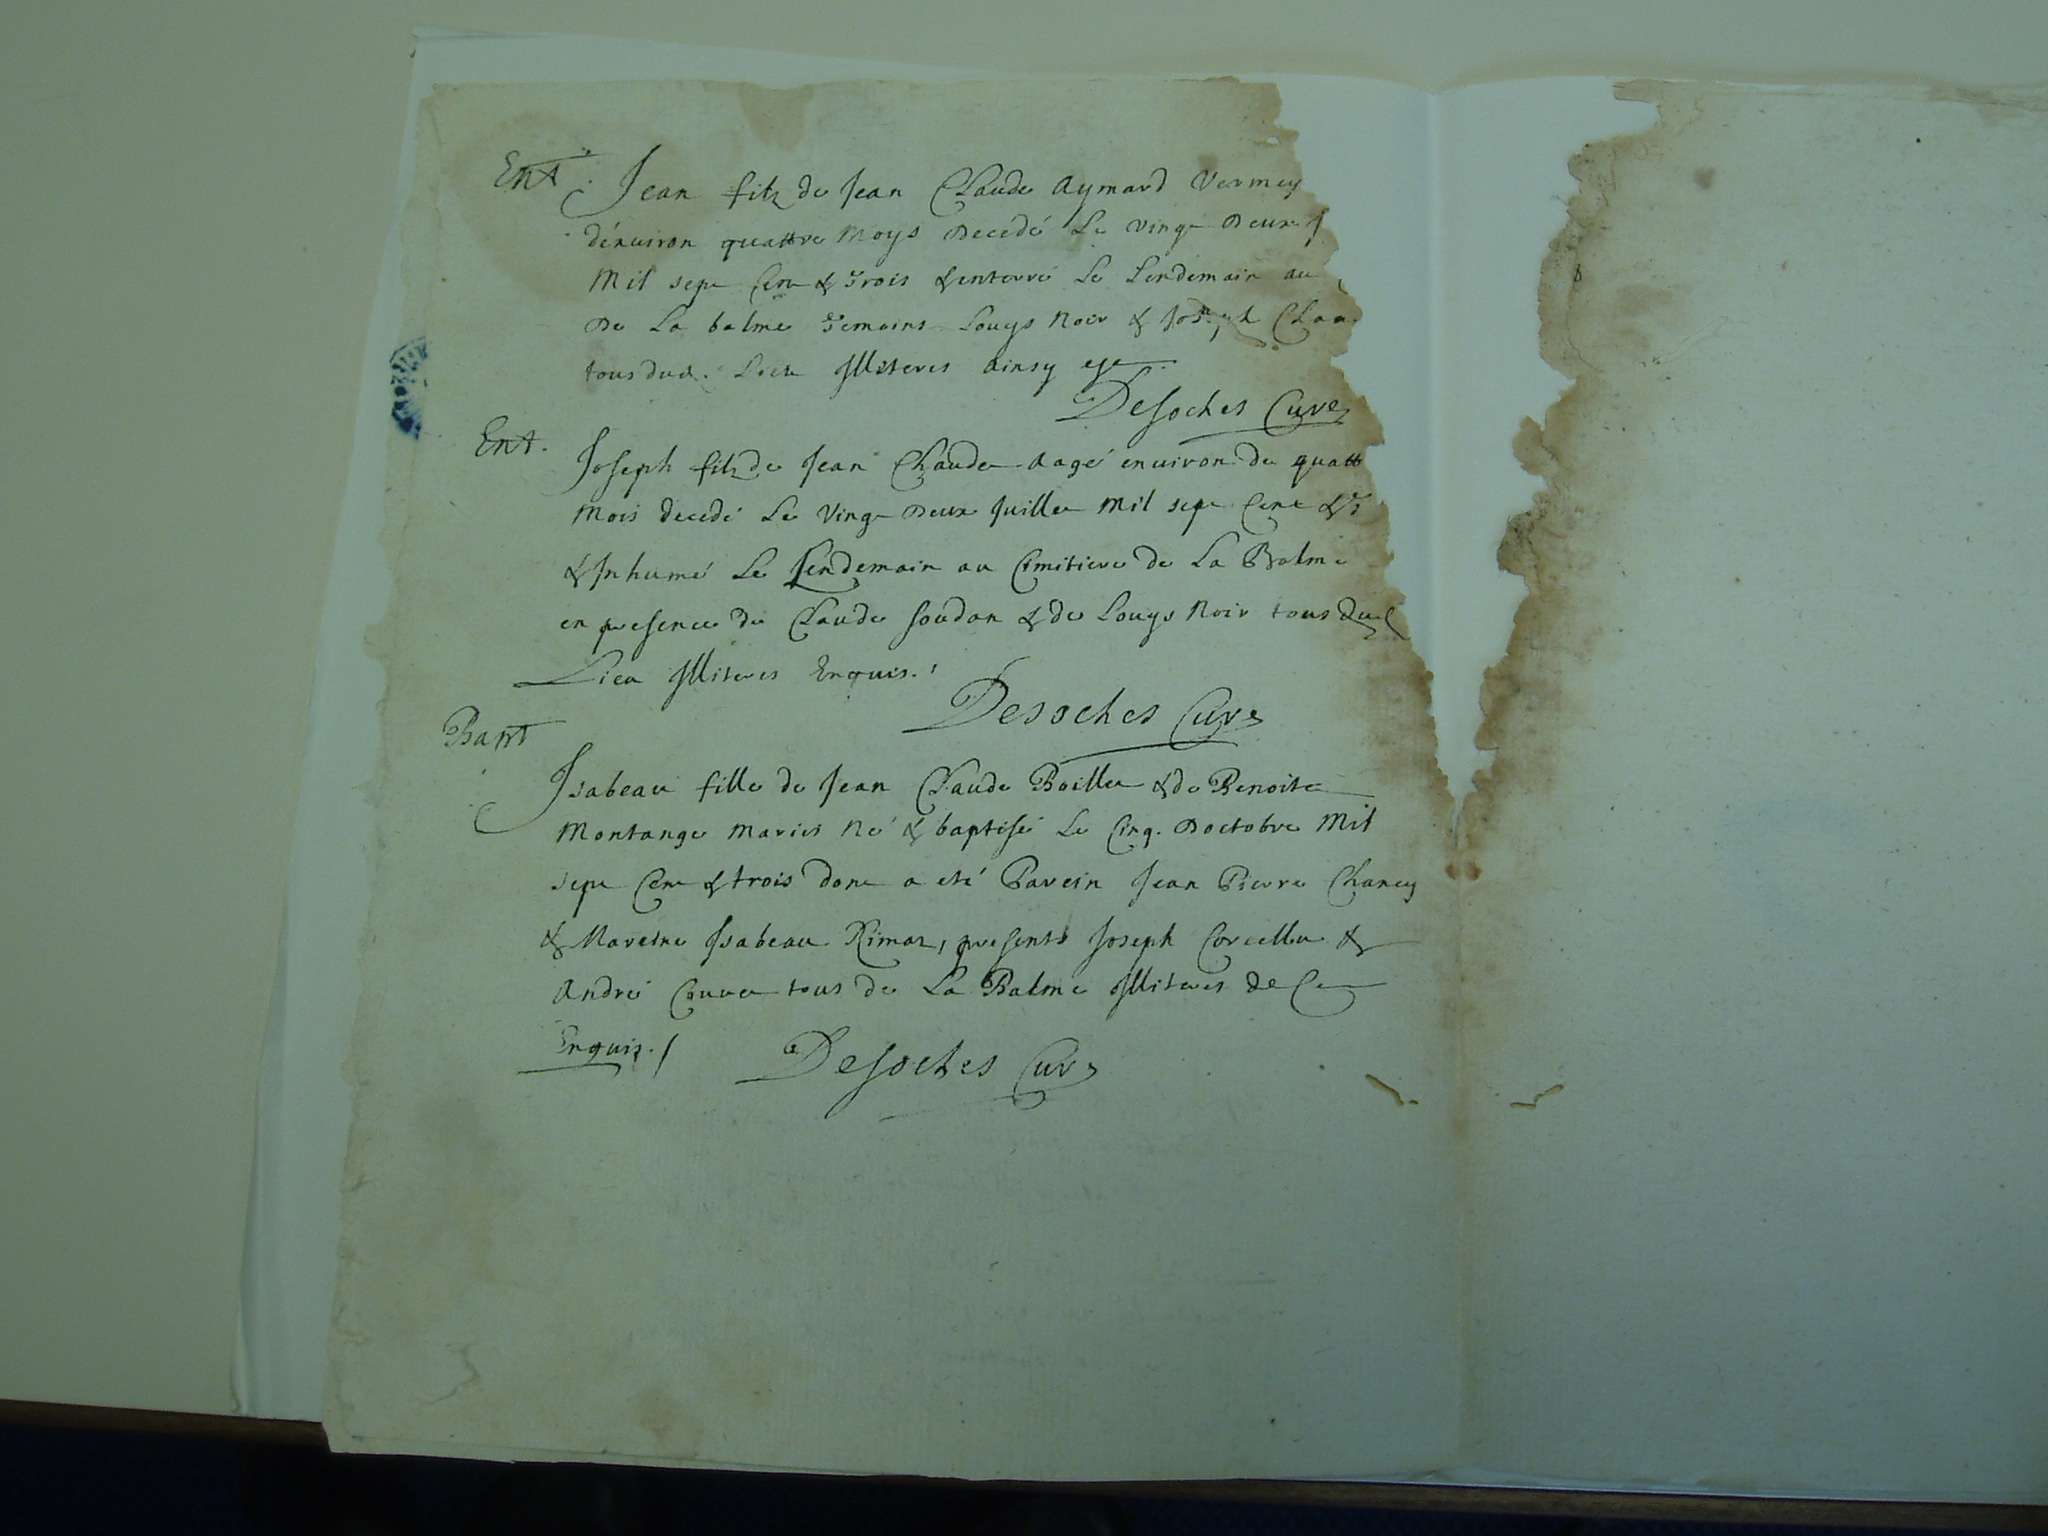 Ent. Jean filz de Jean Claude Aymard Vermey
d'enuiron quattre Moys Decedé Le vingt Deux
Mil sept Cent & trois & enterré Le Lendemain au
De La balme temoins Louys Noir & Joseph Clau
tous dud. Lieu Illiteres ainsy est
Desoches Curé
Ent. Joseph filz de Jean Claude aagé enuiron de quatt
Mois decedé Le Vingt Deux Juillet Mil sept Cent & t
& Inhumé Le Lendemain au Cimitiere de La Balme
en presence de Claude Soudan & de Louys Noir tous dud
Lieu Illiteres Enquis.
Desoches Curé
Bapt
Isabeau fille de Jean Claude Boillet & de Benoite
Montange Mariés Né & baptisé Le Cinq. Doctobre Mil
sept Cent & trois dont a eté Parein Jean Pierre Chaney
& Mareine Isabeau Rimaz, presents Joseph Corcellet &
André Couuet tous de La Balme Illiteres de Ce
Enquis. Desoches Curé